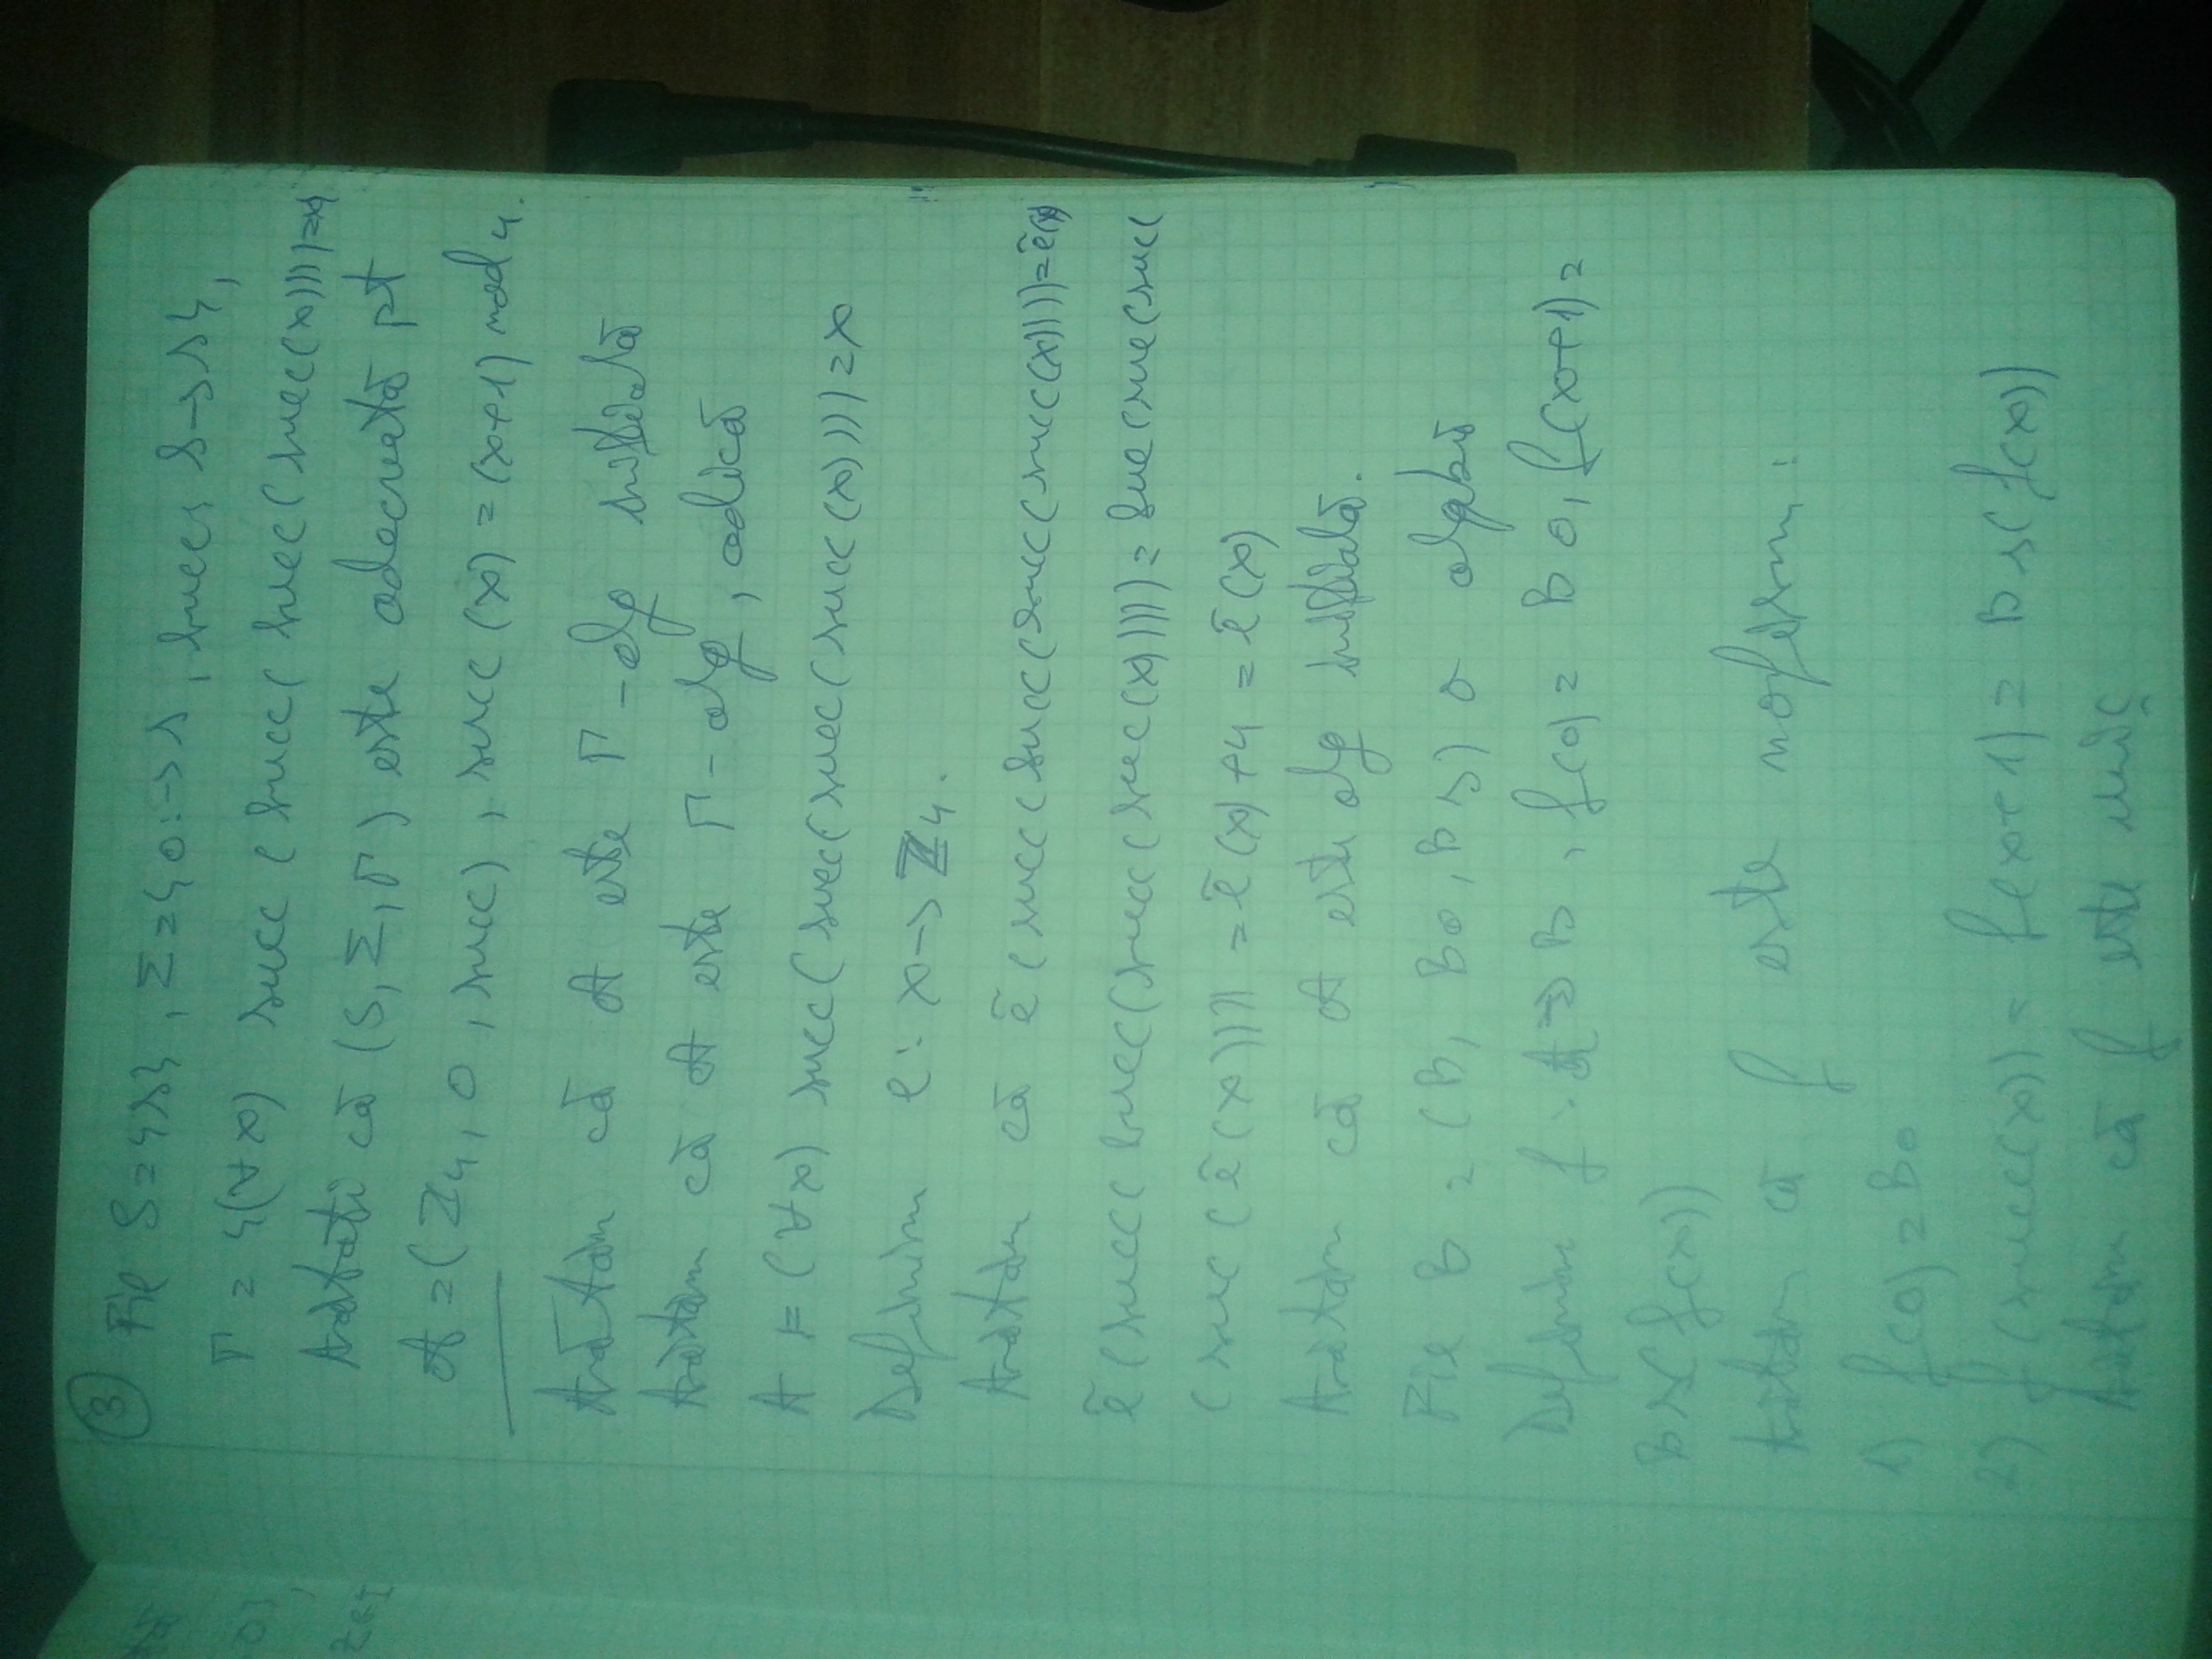 ③ Fie S={s}, Σ={0:→s, succ: s→s},
Γ = {(∀x) succ(succ(succ(succ(x))))=x}
Arătați că (S, Σ, Γ) este adecvată pt
A=(ℤ₄, 0, succ), succ(x)=(x+1) mod 4.
Arătăm că A este Γ-alg inițială
Arătăm că A este Γ-alg, adică
A ⊨ (∀x) succ(succ(succ(succ(x))))=x
Definim e: x→ℤ₄.
Arătăm că ẽ(succ(succ(succ(succ(x)))))=ẽ(x)
ẽ(succ(succ(succ(succ(x)))))=suc(suc(succ
(suc(ẽ(x)))) = ẽ(x)+4 = ẽ(x)
Arătăm că A este alg inițială.
Fie B = (B, B0, Bs) o algebră
Definim f: A→B, f(0)= B0, f(x+1)=
Bs(f(x))
Arătăm că f este mofism:
1) f(0)=B0
2) f(succ(x)) = f(x+1) = Bs(f(x))
Arătăm că f este unic